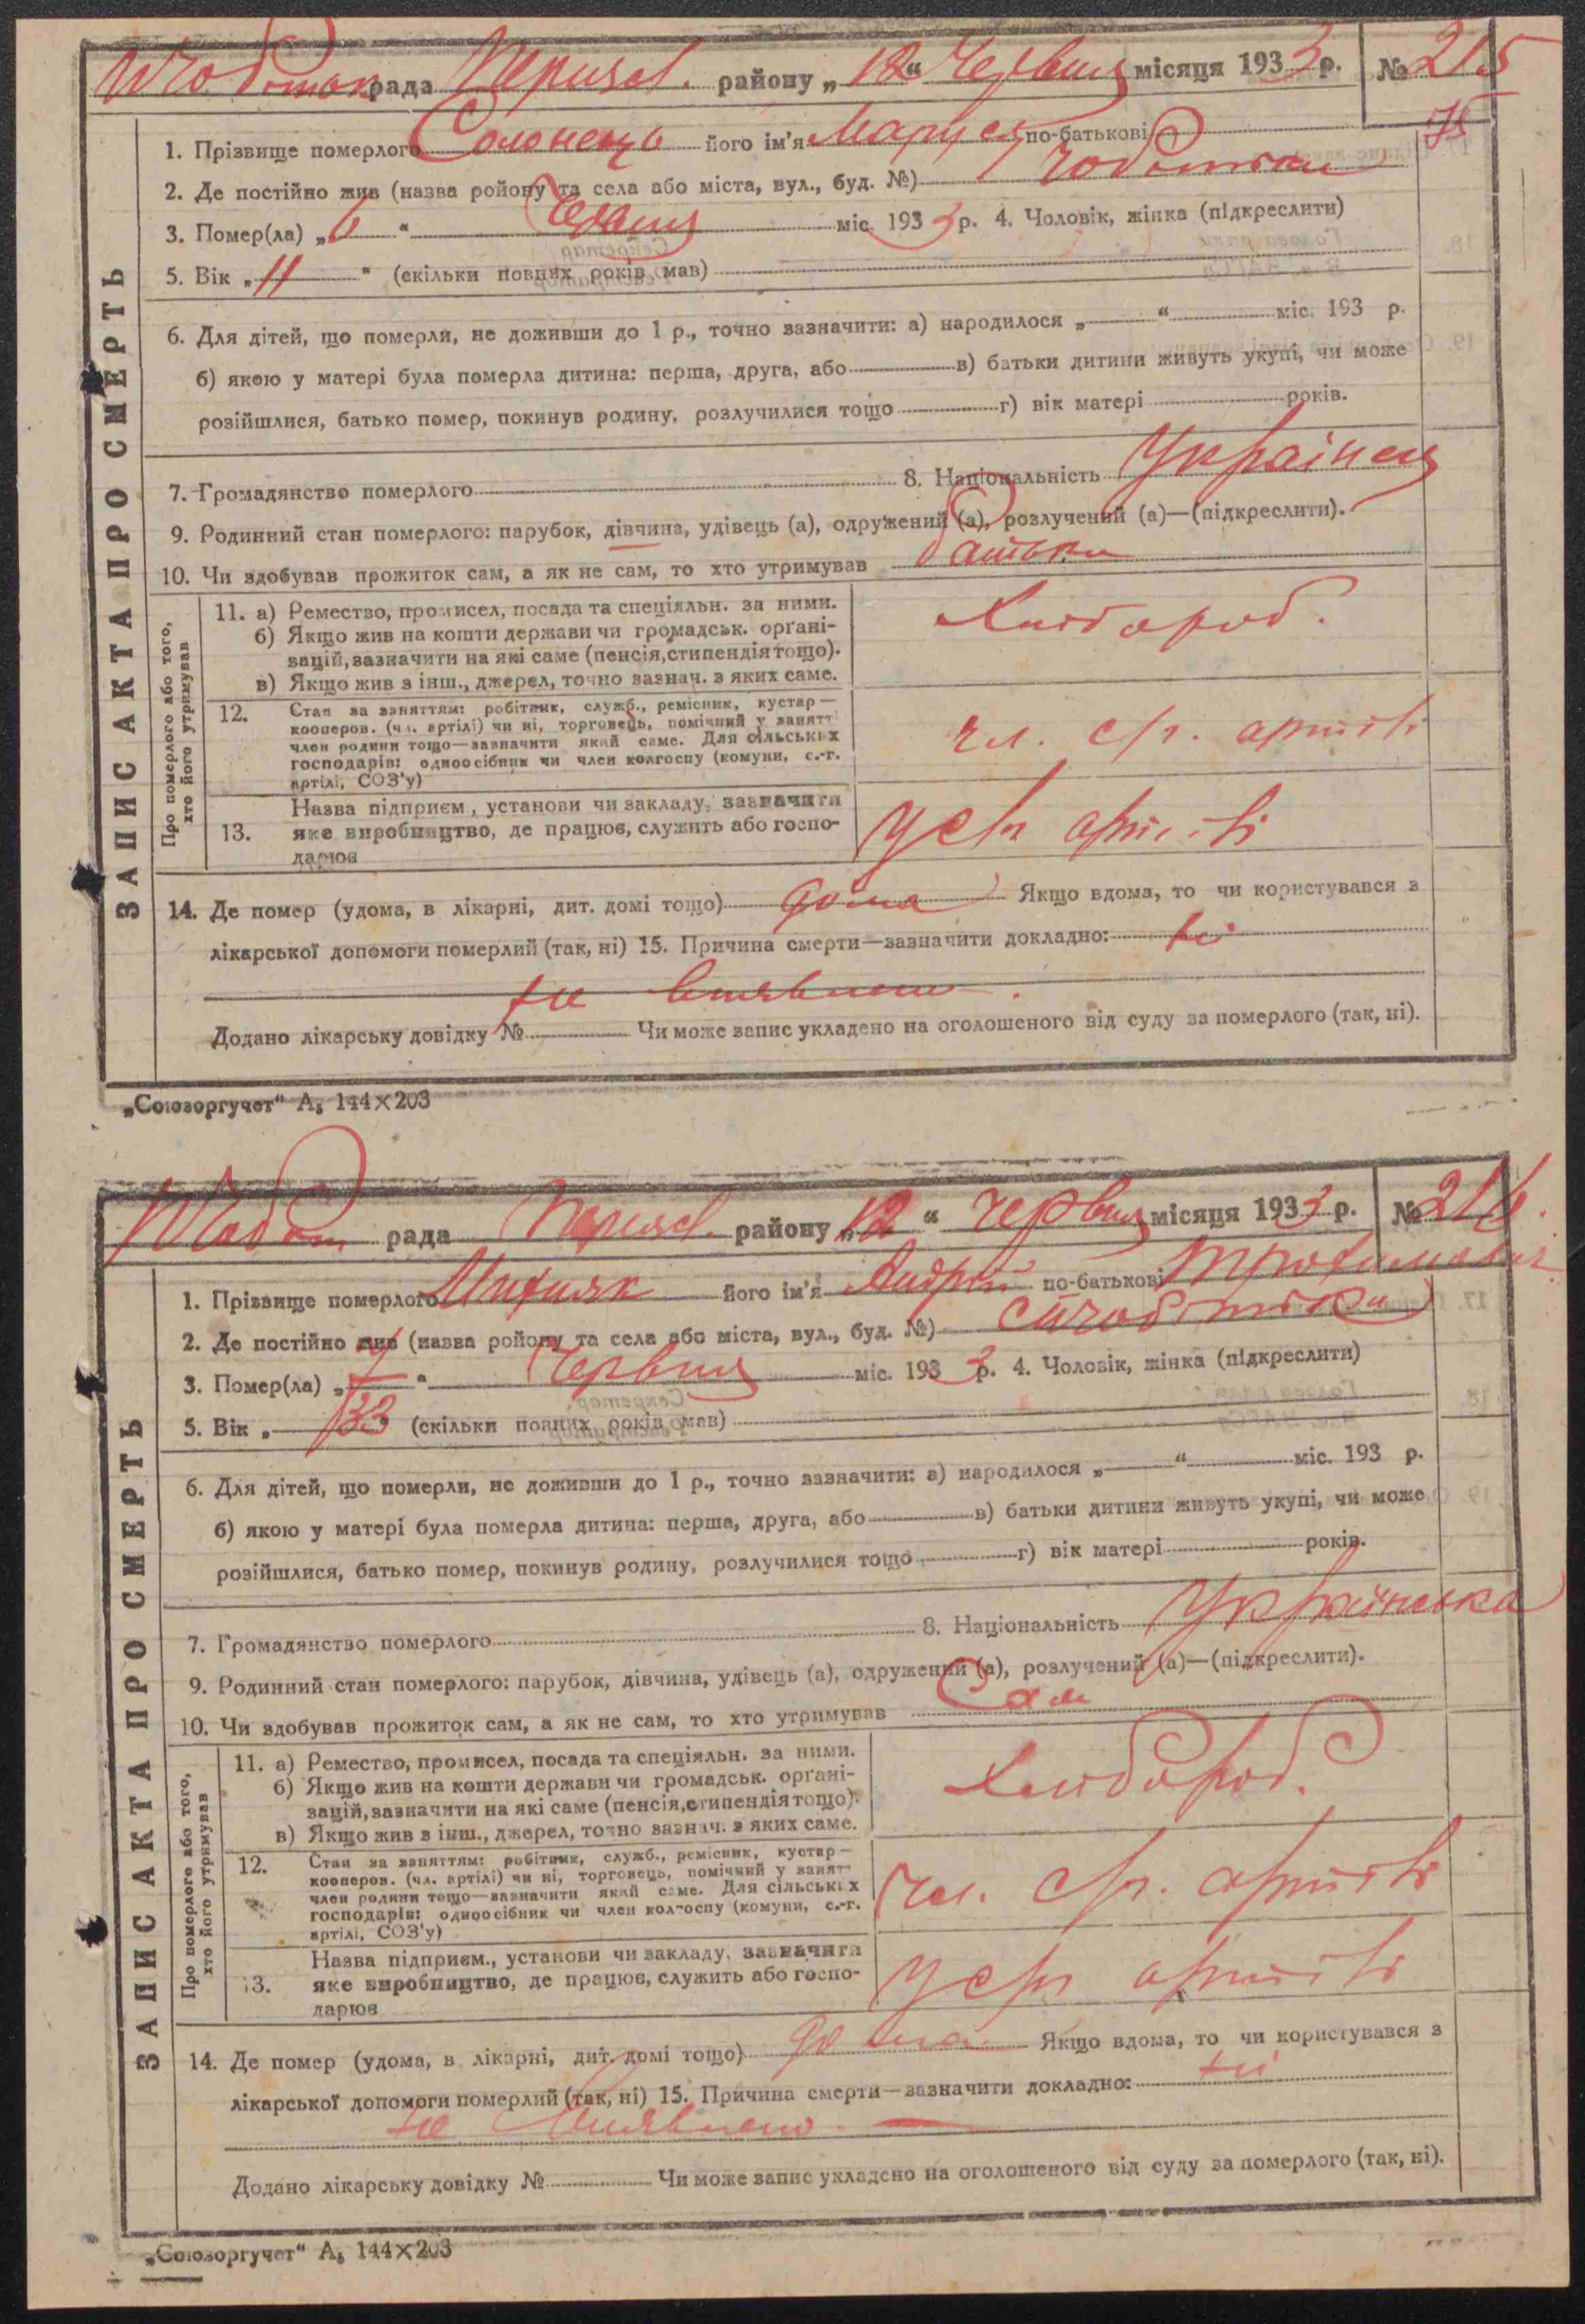 рада Переясл. району „12“ Червня місяця 1933 р. № 215
75
1. Прізвище померлого Солонець його ім'я Маруся по-батькові
2. Де постійно жив (назва ройону та села або міста, вул., буд. №)
3. Помер(ла) „6“ Червня міс. 1933 р. 4. Чоловік, жінка (підкреслити)
5. Вік „11“ (скільки повних років мав)
6. Для дітей, що померли, не доживши до 1 р., точно зазначити: а) народилося „ “ міс. 193 р.
б) якою у матері була померла дитина: перша, друга, або в) батьки дитини живуть укупі, чи може
розійшлися, батько помер, покинув родину, розлучилися тощо г) вік матері років.
7. Громадянство померлого 8. Національність Українец
9. Родинний стан померлого: парубок, дівчина, удівець (а), одружений (а), розлучений (а)—(підкреслити).
10. Чи здобував прожиток сам, а як не сам, то хто утримував батьки
ЗАПИС АКТА ПРО СМЕРТЬ
Про померлого або того, хто його утримував
11. а) Ремество, промисел, посада та спеціяльн. за ними.
б) Якщо жив на кошти держави чи громадськ. орґані-
зацій, зазначити на які саме (пенсія, стипендія тощо).
в) Якщо жив з інш., джерел, точно зазнач. з яких саме.
Хлібороб.
12. Стан за заняттям: робітник, служб., ремісник, кустар—
кооперов. (чл. артілі) чи ні, торговець, помічний у занятт
член родини тощо—зазначити який саме. Для сільських
господарів: одноосібник чи член колгоспу (комуни, с.-г.
артілі, СОЗ'у)
чл. с/г. артілі
13. Назва підприєм., установи чи закладу, зазначити
яке виробництво, де працює, служить або госпо-
дарює
У с/г артілі
14. Де помер (удома, в лікарні, дит. домі тощо) дома Якщо вдома, то чи користувався з
лікарської допомоги померлий (так, ні) 15. Причина смерти—зазначити докладно: ні
не виявлено.
Додано лікарську довідку № Чи може запис укладено на оголошеного від суду за померлого (так, ні).
„Союзоргучет“ А₅ 144×203
рада Переясл. району „12“ Червня місяця 1933 р. № 216.
1. Прізвище померлого його ім'я Андрій по-батькові Трохимович
2. Де постійно жив (назва ройону та села або міста, вул., буд. №)
3. Помер(ла) „7“ Червня міс. 1933 р. 4. Чоловік, жінка (підкреслити)
5. Вік „33“ (скільки повних років мав)
6. Для дітей, що померли, не доживши до 1 р., точно зазначити: а) народилося „ “ міс. 193 р.
б) якою у матері була померла дитина: перша, друга, або в) батьки дитини живуть укупі, чи може
розійшлися, батько помер, покинув родину, розлучилися тощо г) вік матері років.
7. Громадянство померлого 8. Національність Українська
9. Родинний стан померлого: парубок, дівчина, удівець (а), одружений (а), розлучений (а)—(підкреслити).
10. Чи здобував прожиток сам, а як не сам, то хто утримував Сам
ЗАПИС АКТА ПРО СМЕРТЬ
Про померлого або того, хто його утримував
11. а) Ремество, промисел, посада та спеціяльн. за ними.
б) Якщо жив на кошти держави чи громадськ. орґані-
зацій, зазначити на які саме (пенсія, стипендія тощо).
в) Якщо жив з інш., джерел, точно зазнач. з яких саме.
Хлібороб.
12. Стан за заняттям: робітник, служб., ремісник, кустар—
кооперов. (чл. артілі) чи ні, торговець, помічний у занятт
член родини тощо—зазначити який саме. Для сільських
господарів: одноосібник чи член колгоспу (комуни, с.-г.
артілі, СОЗ'у)
чл. с/г. артілі
13. Назва підприєм., установи чи закладу, зазначити
яке виробництво, де працює, служить або госпо-
дарює
У с/г артілі
14. Де помер (удома, в лікарні, дит. домі тощо) дома Якщо вдома, то чи користувався з
лікарської допомоги померлий (так, ні) 15. Причина смерти—зазначити докладно: ні
не виявлено.
Додано лікарську довідку № Чи може запис укладено на оголошеного від суду за померлого (так, ні).
„Союзоргучет“ А₅ 144×203